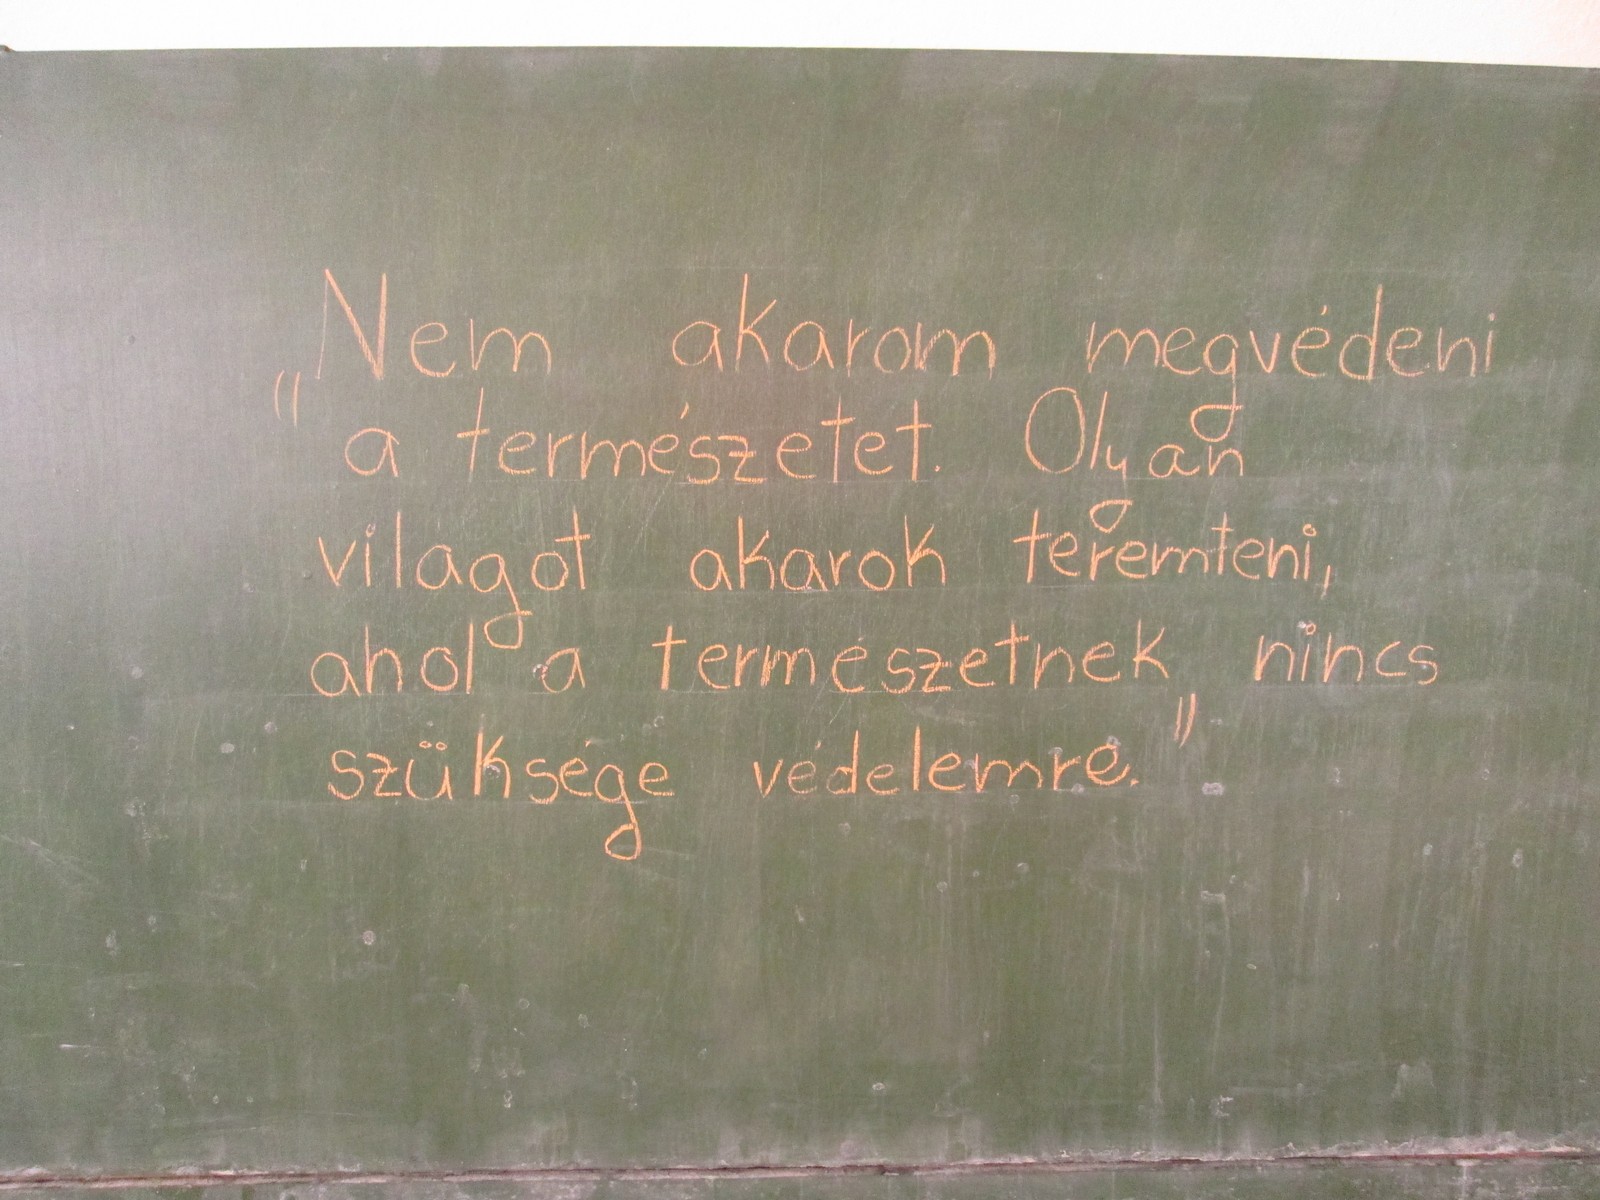 „Nem akarom megvédeni
a természetet. Olyan
vilagot akarok teremteni,
ahol a természetnek nincs
szüksége védelemre."